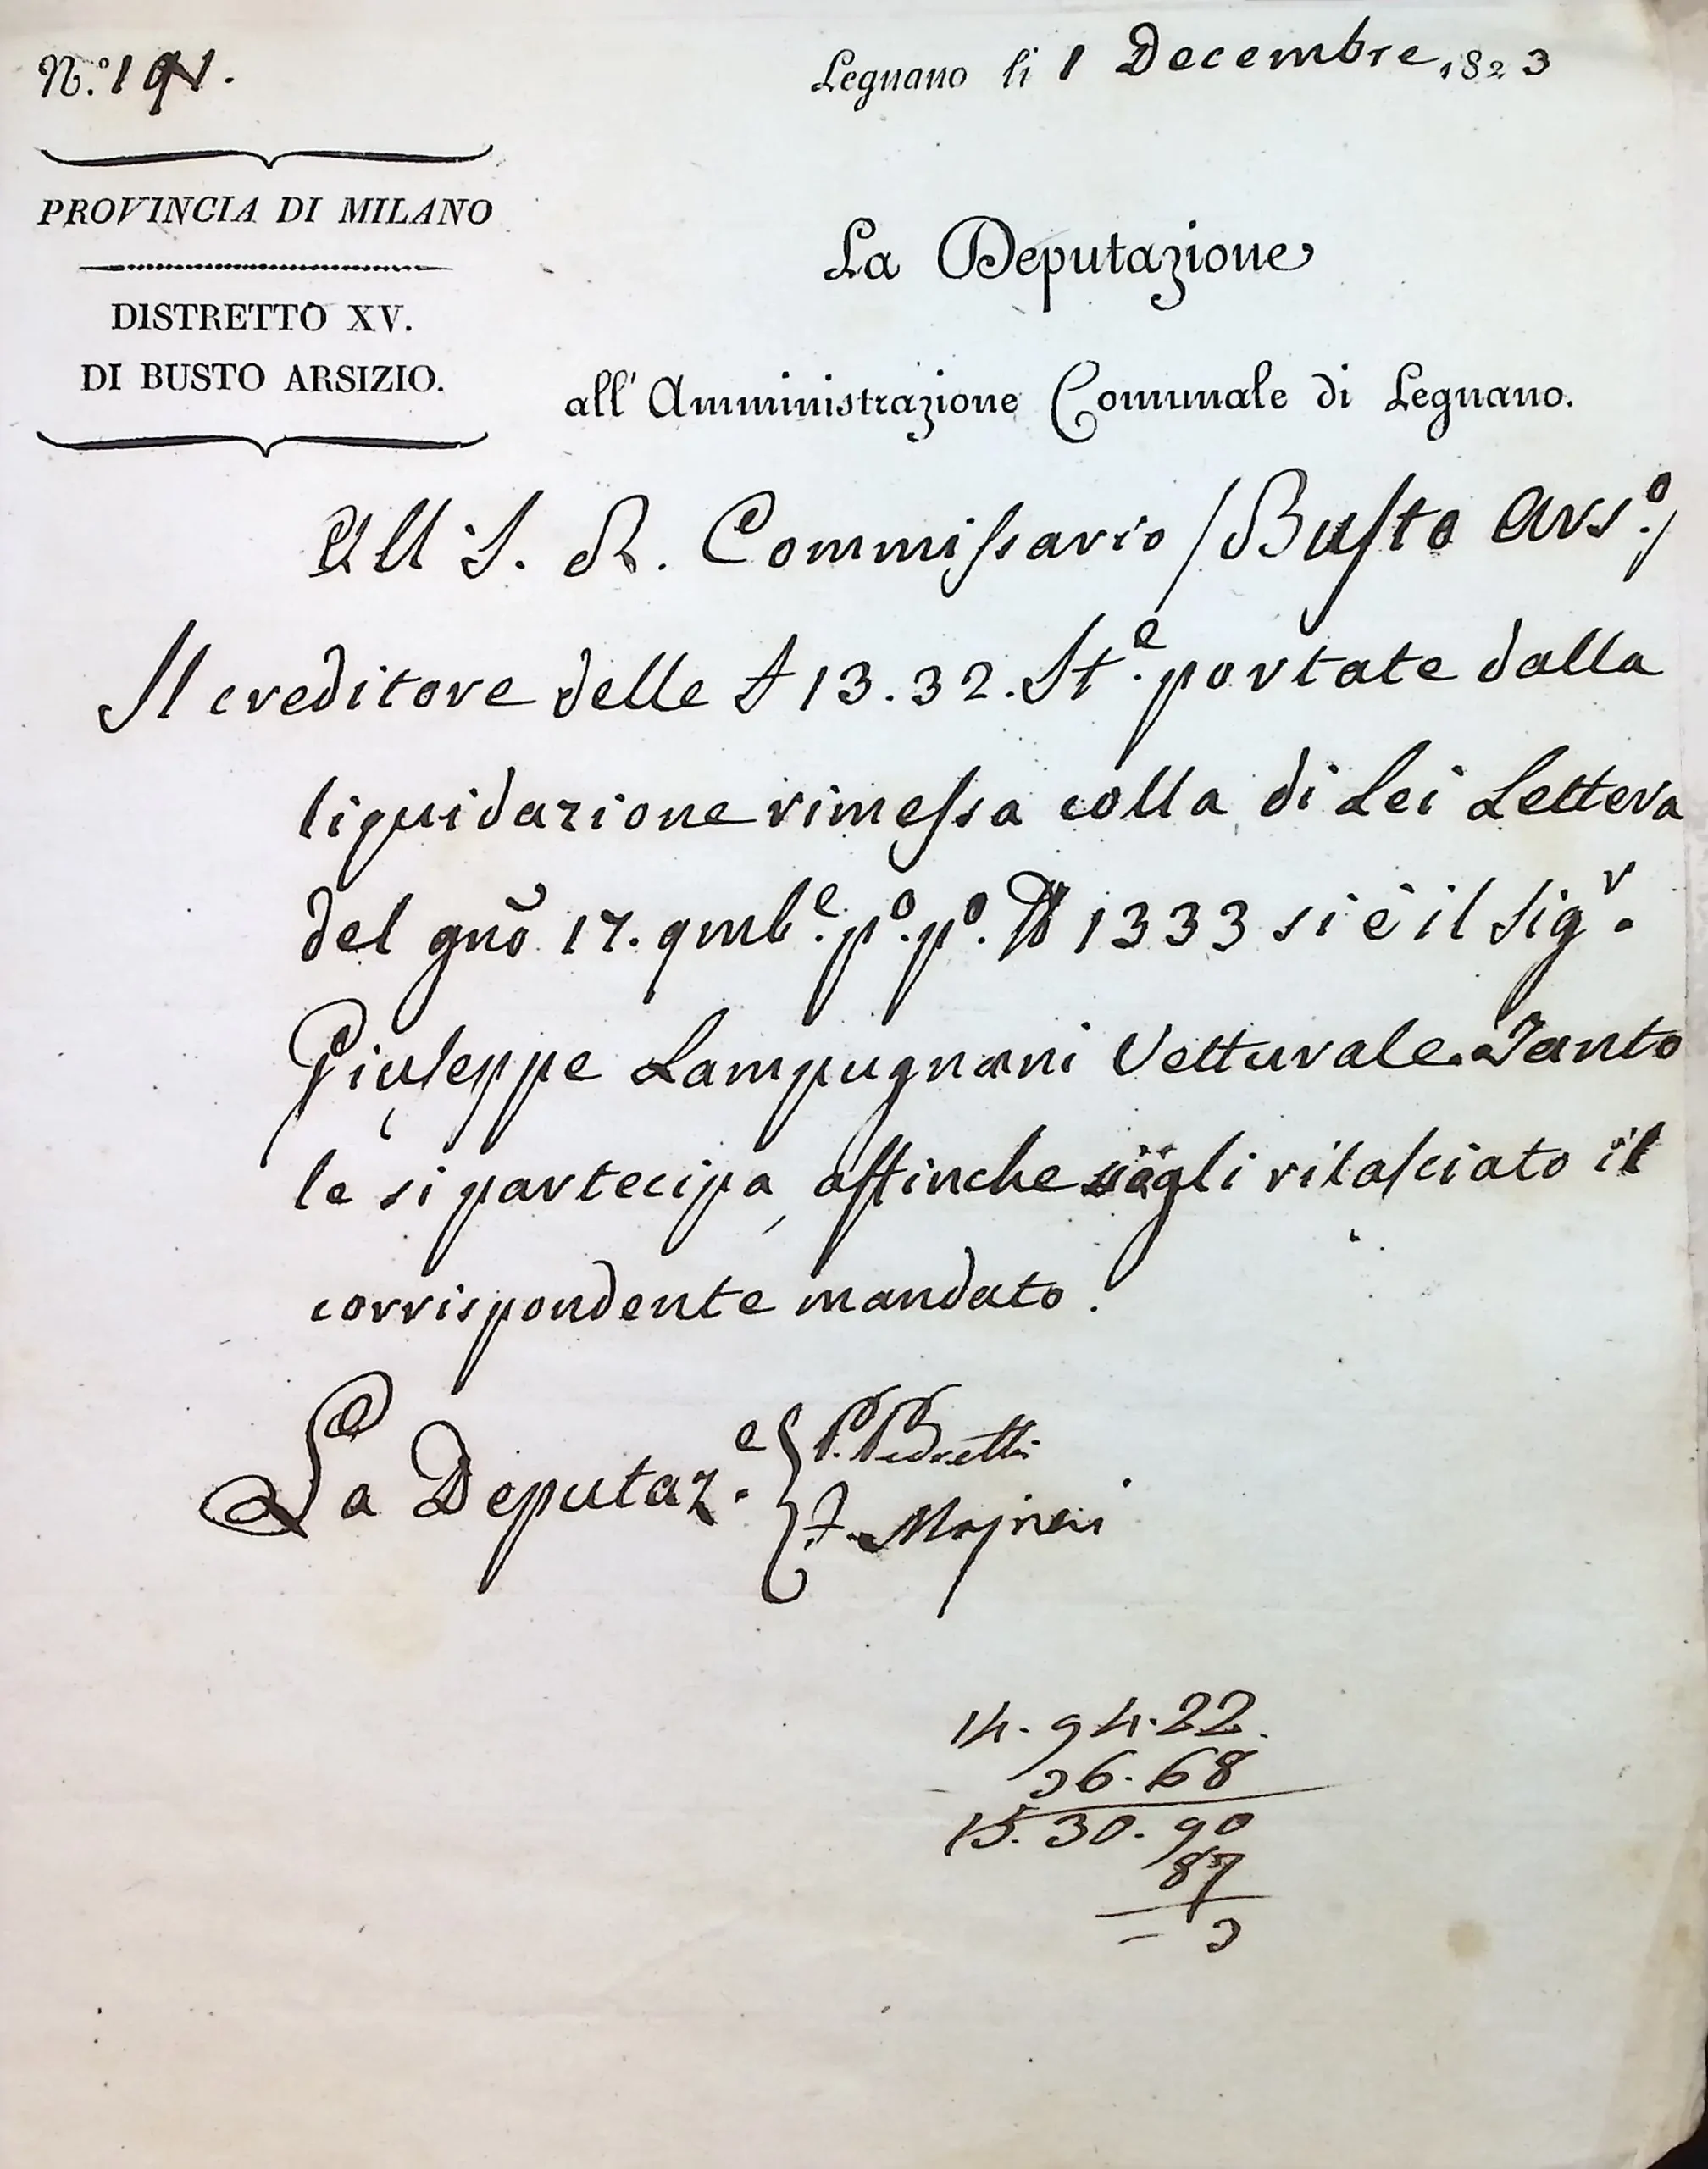 N.º 191.
Legnano li 1 Decembre 1823
PROVINCIA DI MILANO
DISTRETTO XV.
DI BUSTO ARSIZIO.
La Deputazione
all' Amministrazione Comunale di Legnano.
All' I. R. Commissario / Busto Ars.º /
Il creditore delle £ 13.32. It.e portate dalla
liquidazione rimessa colla di Lei Lettera
del gnõ 17. 9mb.e p.º p.º N 1333 si è il Sig.r
Giuseppe Lampugnani Vetturale. Tanto
le si partecipa, affinche siagli rilasciato il
corrispondente mandato.
La Deputaz.e { P. Pedretti
F. Majneri
14. 94. 22.
36. 68
15. 30. 90
87
— 3